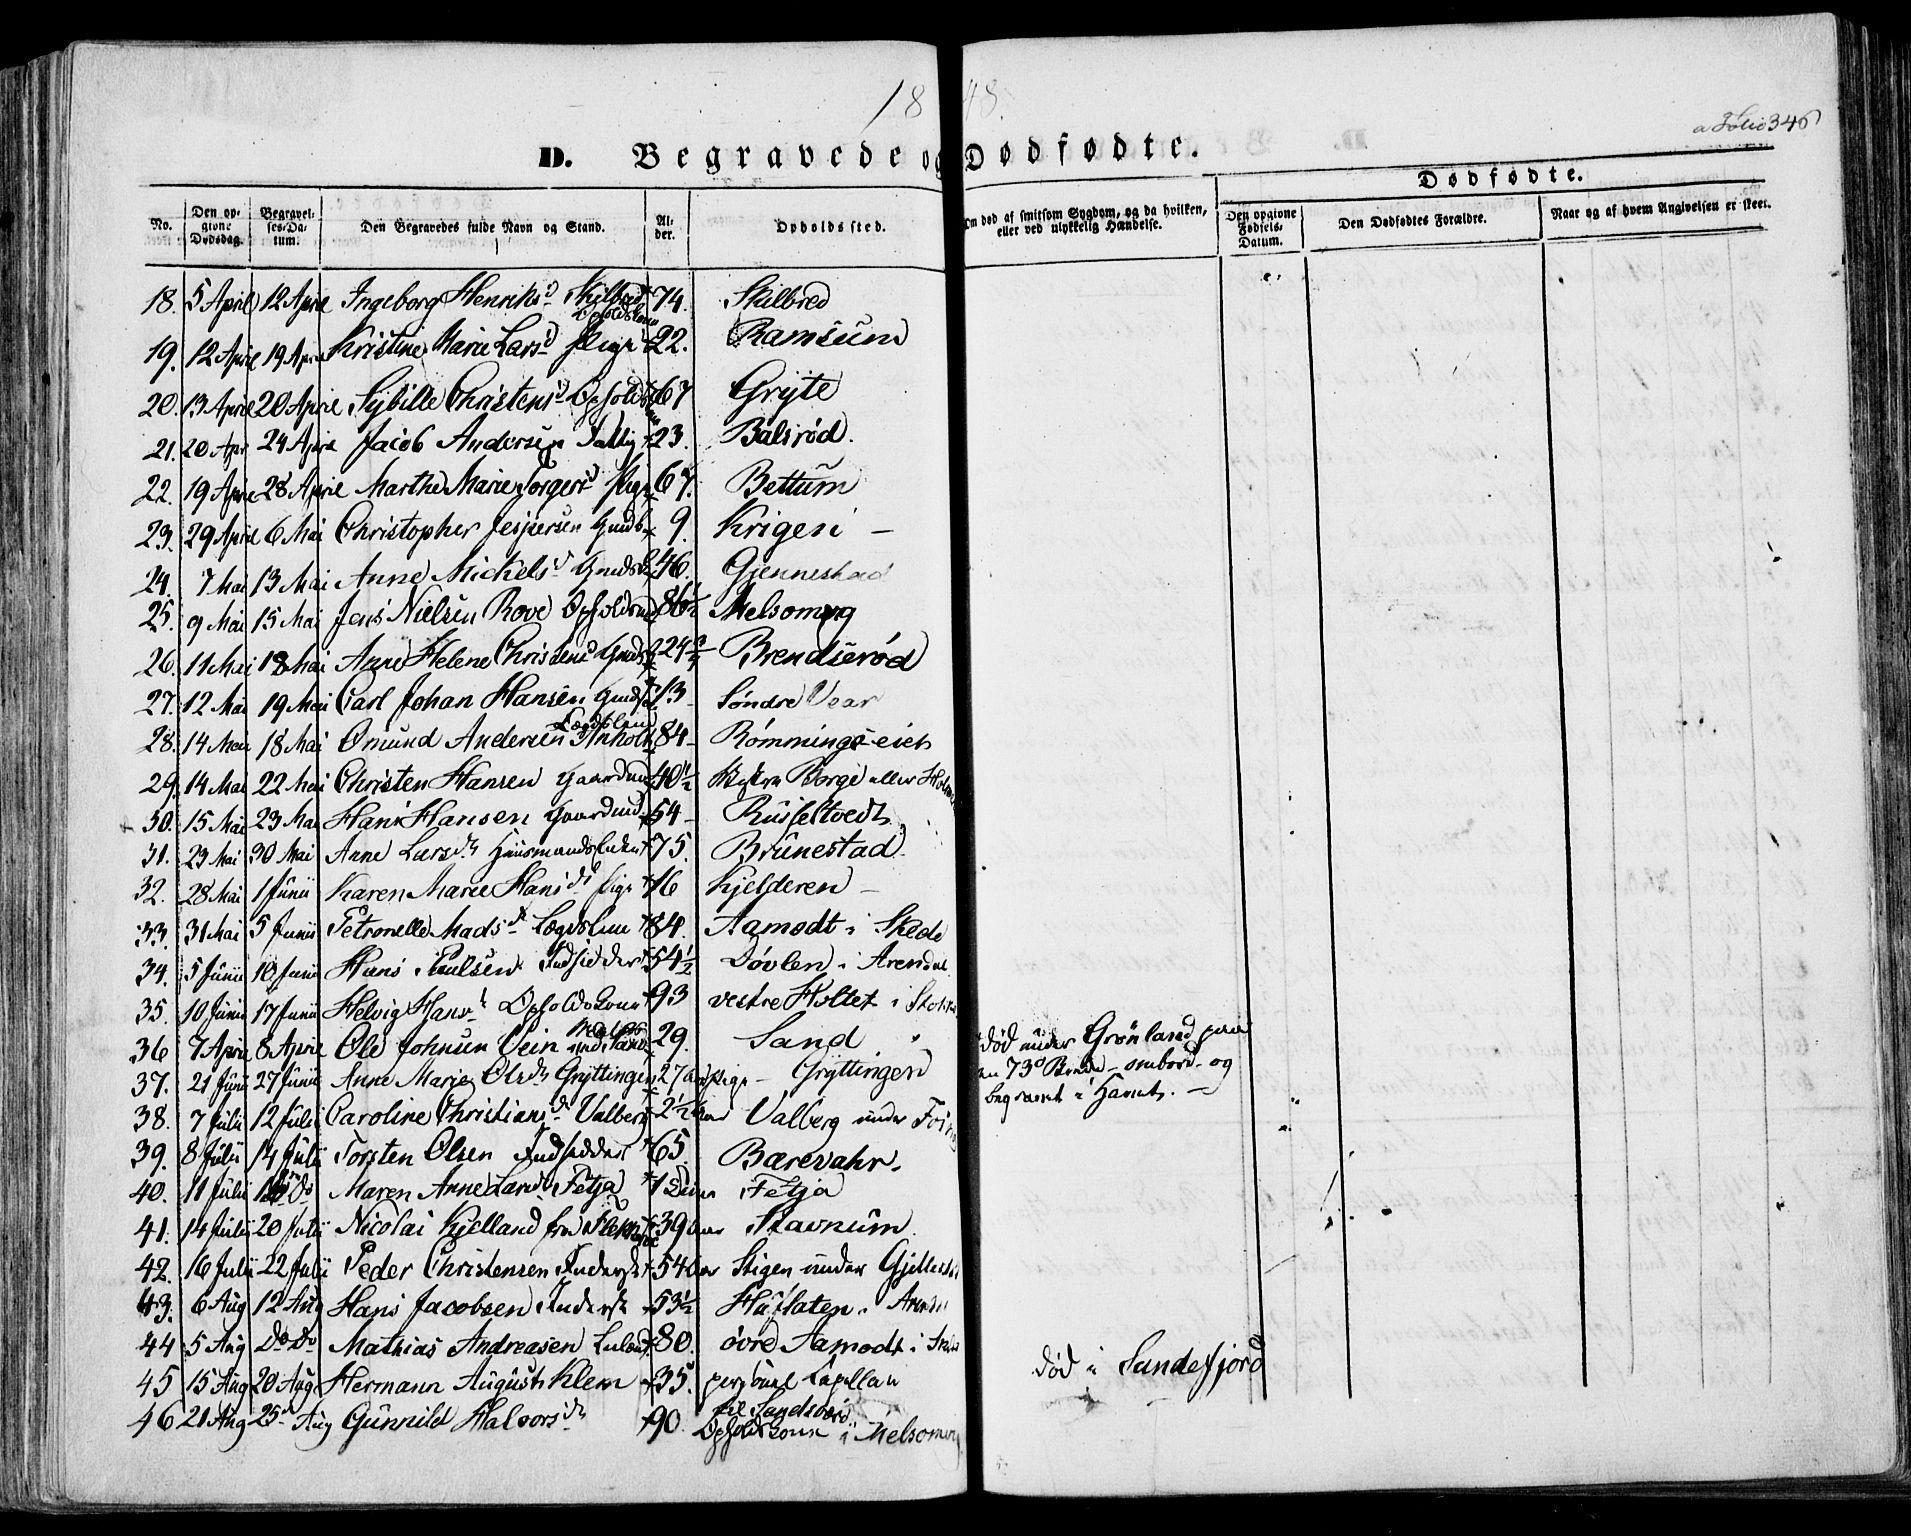 1848.
a Folio 346
D. Begravede og Dødfødte.
Dødfødte.
No. | Den opgivne Dødsdag. | Begravelses-Datum. | Den Begravedes fulde Navn og Stand. | Alder. | Opholdssted. | Om død af smitsom Sygdom, og da hvilken, eller ved ulykkelig Hændelse. | Den opgivne Fødsels-Datum. | Den Dødfødtes Forældre. | Naar og af hvem Angivelsen er skeet.
18. 5 April 12 April Ingeborg Henriksd Skilbred Opholdskone 74. Skilbred
19. 12 April 19 April Kristine Marie Larsd Pige 22. Ramsum
20. 13 April 20 April Sybille Christensd Opholdskone 67 Gryte
21. 20 Apr 24 April Jacob Andersen Fattig 23. Balsrød.
22. 19 April 28 April Marthe Marie Torgersd Pige 67. Bettum
23. 29 April 6 Mai Christopher Jespersen Gmdsb 9. Krigen
24. 7 Mai 13 Mai Anne Mickelsd 46. Gjennestad
25. 9 Mai 15 Mai Jens Nielsen Rove Opholdsmd 86½ Melsomvig
26. 11 Mai 18 Mai Anne Helene Christensd 24 Brendserød
27. 12 Mai 19 Mai Carl Johan Hansen 13 Søndre Vear
28. 14 Mai 18 Mai Omund Andersen Anholt Lægdslem 84 Rømmingseiet
29. 14 Mai 22 Mai Christen Hansen Gaardmd 40½ Vestre Borge eller
30. 15 Mai 23 Mai Hans Hansen Gaardmd 54 Russeltvedt
31. 23 Mai 30 Mai Anne Larsdr Huusmandsenke 75. Brunestad
32. 28 Mai 1 Junii Karen Marie Hansdr Pige 16 Kjelderen
33. 31 Mai 5 Junii Petronelle Madsdr Lægdslem 84. Aamodt i Skede
34. 5 Junii 10 Junii Hans Paulsen Indsidder 54½ Døvlen i Arendal
35. 10 Junii 17 Junii Helvig Hansdr Opholdskone 93 vestre Holtet i Stokke
36 7 April 8 April Ole Johnsen Vein 29. Sand død under Grønland paa
37. 21 Junii 27 Junii Anne Marie Olsdr Gryttingen 27 Aar Pige Gryttingen en 73° Brede ombord og
38. 7 Julii 12 Julii Caroline Christiansdr Valberg 2½ Aar Valberg under begravet i Havet.
39. 8 Julii 14 Julii Torsten Olsen Indsidder 65. Bærevahr.
40. 11 Julii Do Maren Anne Larsdr Fetja 1 Fetja
41. 14 Julii 20 Julii Nicolai Kjelland fra 39 Aar Stavnum
42. 16 Julii 22 Julii Peder Christensen Inderst 54 Aar Stigen under
43. 6 Aug 12 Aug Hans Jacobsen Inderst 53½ Haflaten i
44 5 Aug Do Do Mathias Andreasen 80. øvre Aamodt i
45 15 Aug 20 Aug Hermann August Klem 35. personel Capellan til Sandeherred død i Sandefjord
46 21 Aug 25 Aug Gunnild Halvorsdr 90 Opholdskone i Melsomvig